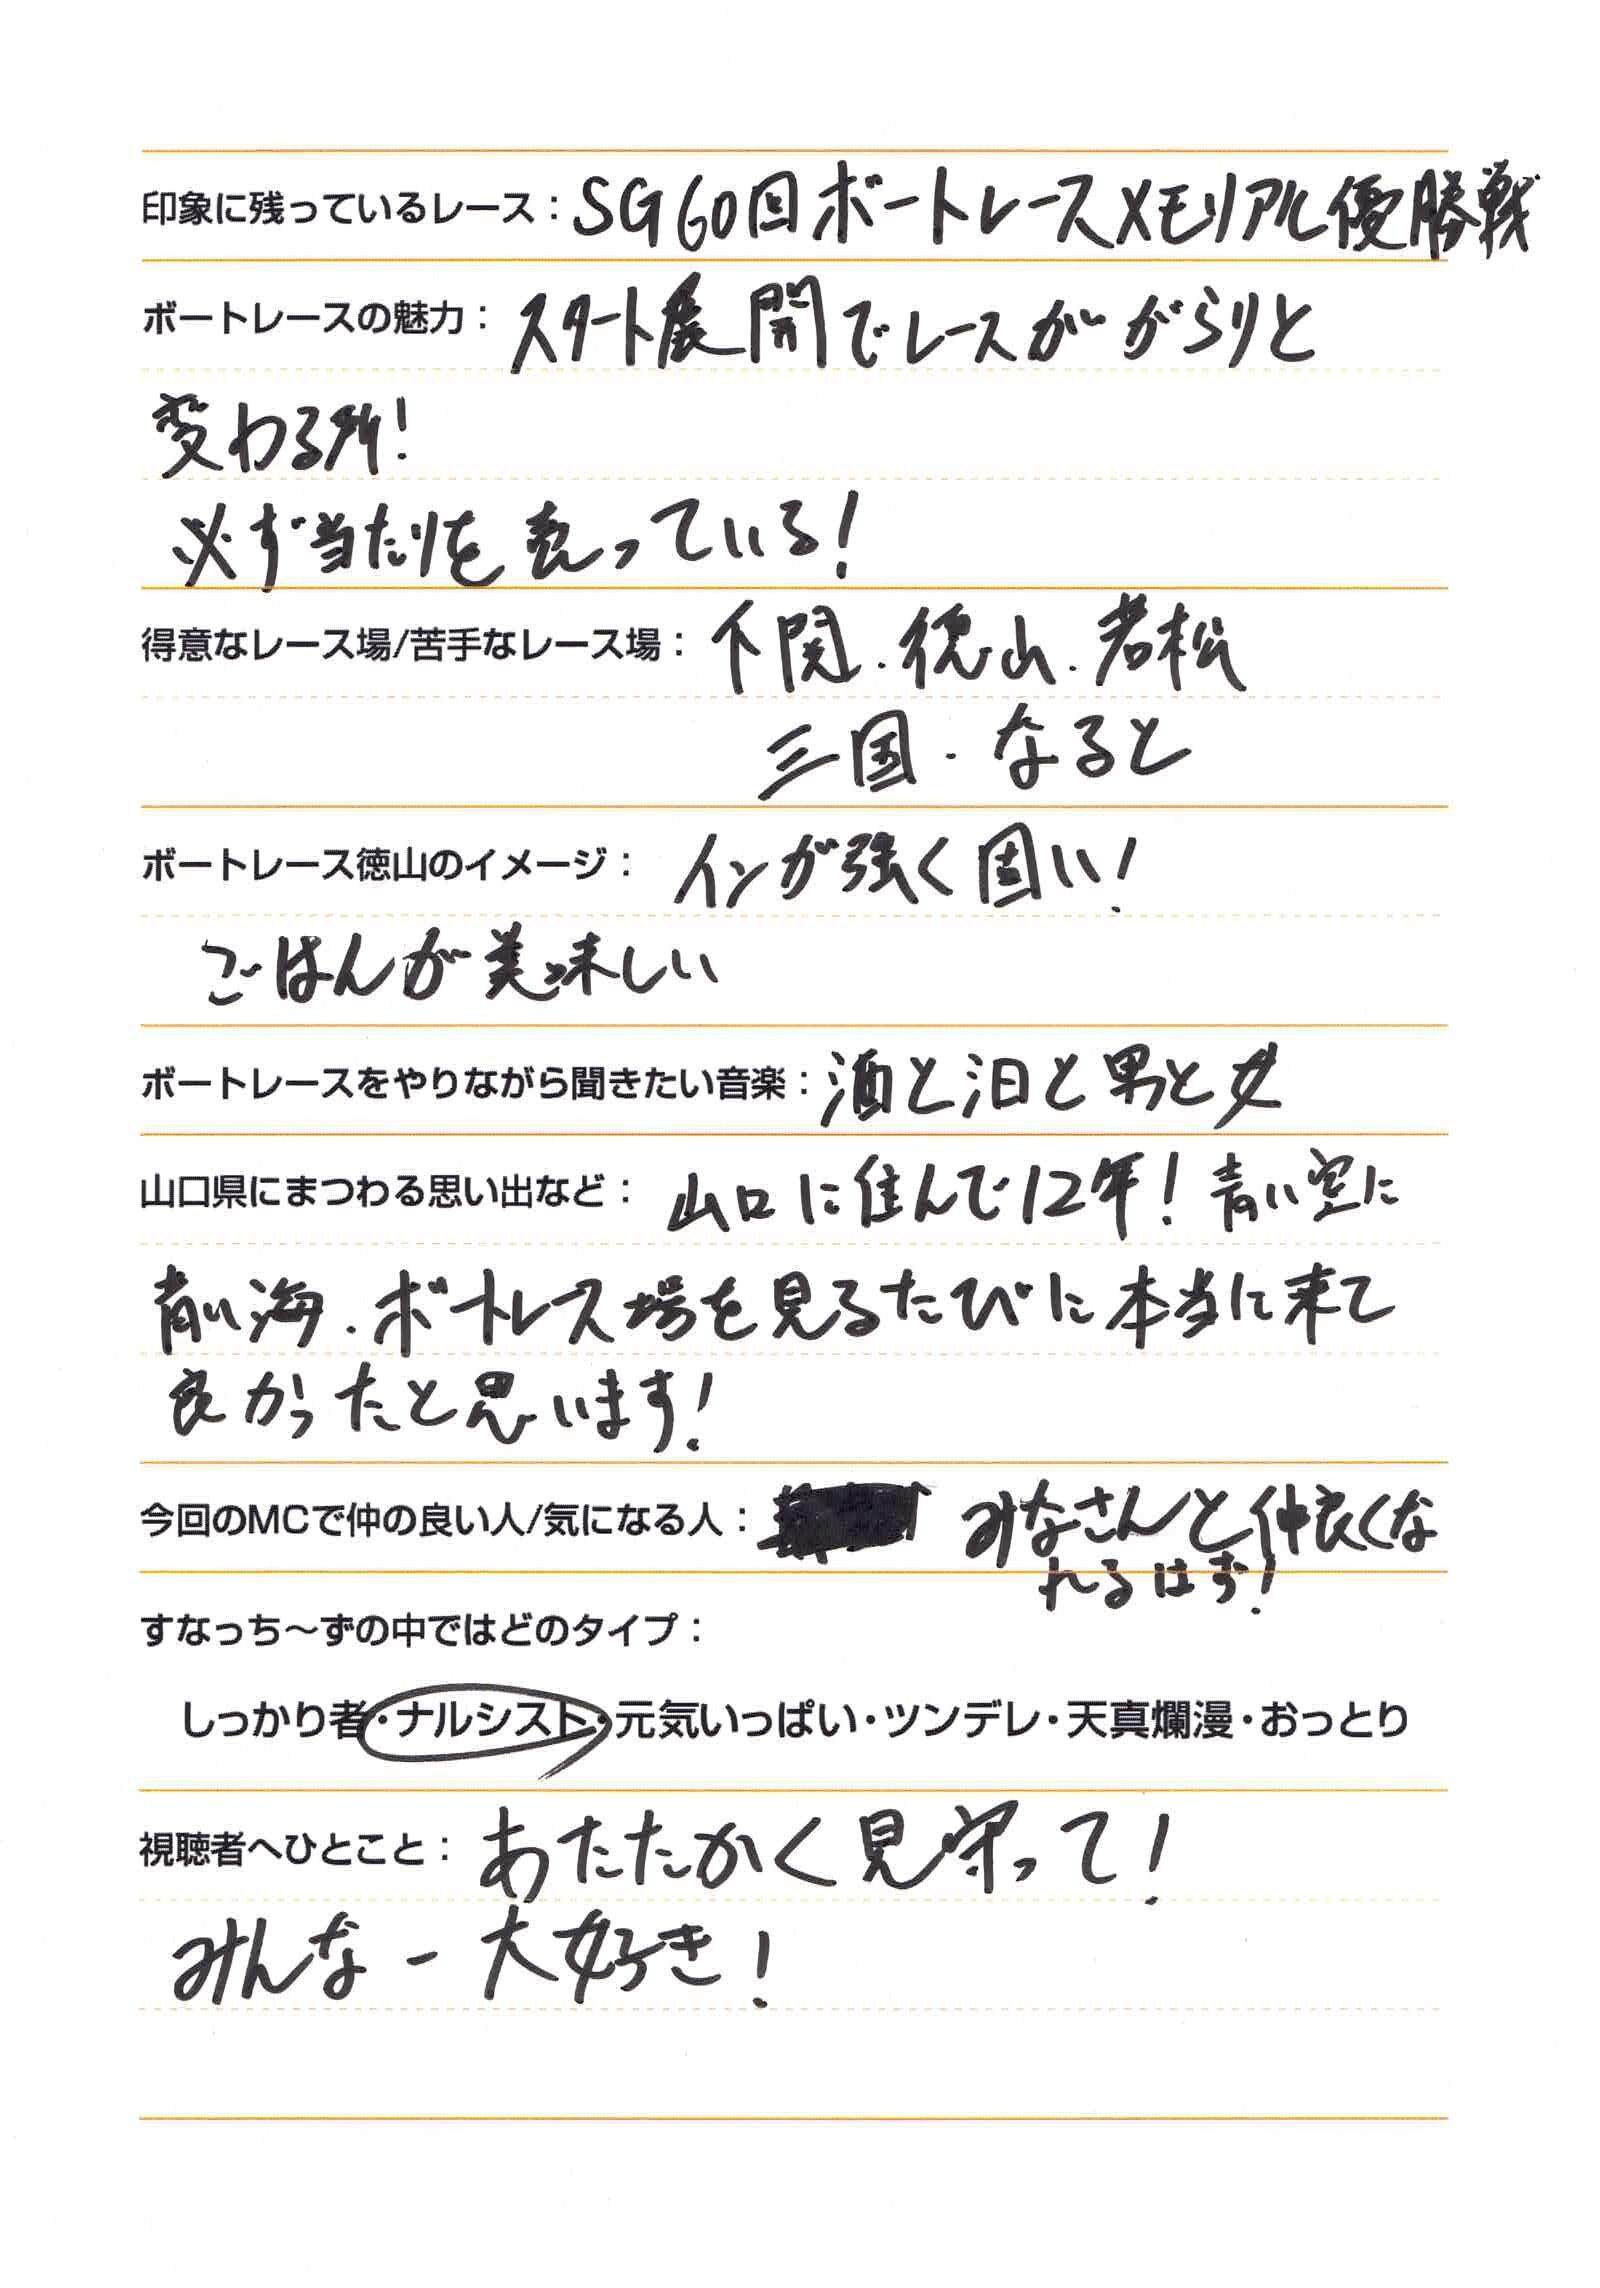 印象に残っているレース：SG60回ボートレースメモリアル優勝戦
ボートレースの魅力：スタート展開でレースががらりと
変わる所！
必ず当たりを売っている！
得意なレース場/苦手なレース場：下関．徳山．若松
三国．なると
ボートレース徳山のイメージ：インが強く固い！
ごはんが美味しい
ボートレースをやりながら聞きたい音楽：酒と泪と男と女
山口県にまつわる思い出など：山口に住んで12年！青い空に
青い海．ボートレース場を見るたびに本当に来て
良かったと思います！
今回のMCで仲の良い人/気になる人：みなさんと仲良くな
れるはず！
すなっち〜ずの中ではどのタイプ：
しっかり者・ナルシスト・元気いっぱい・ツンデレ・天真爛漫・おっとり
視聴者へひとこと：あたたかく見守って！
みんなー大好き！